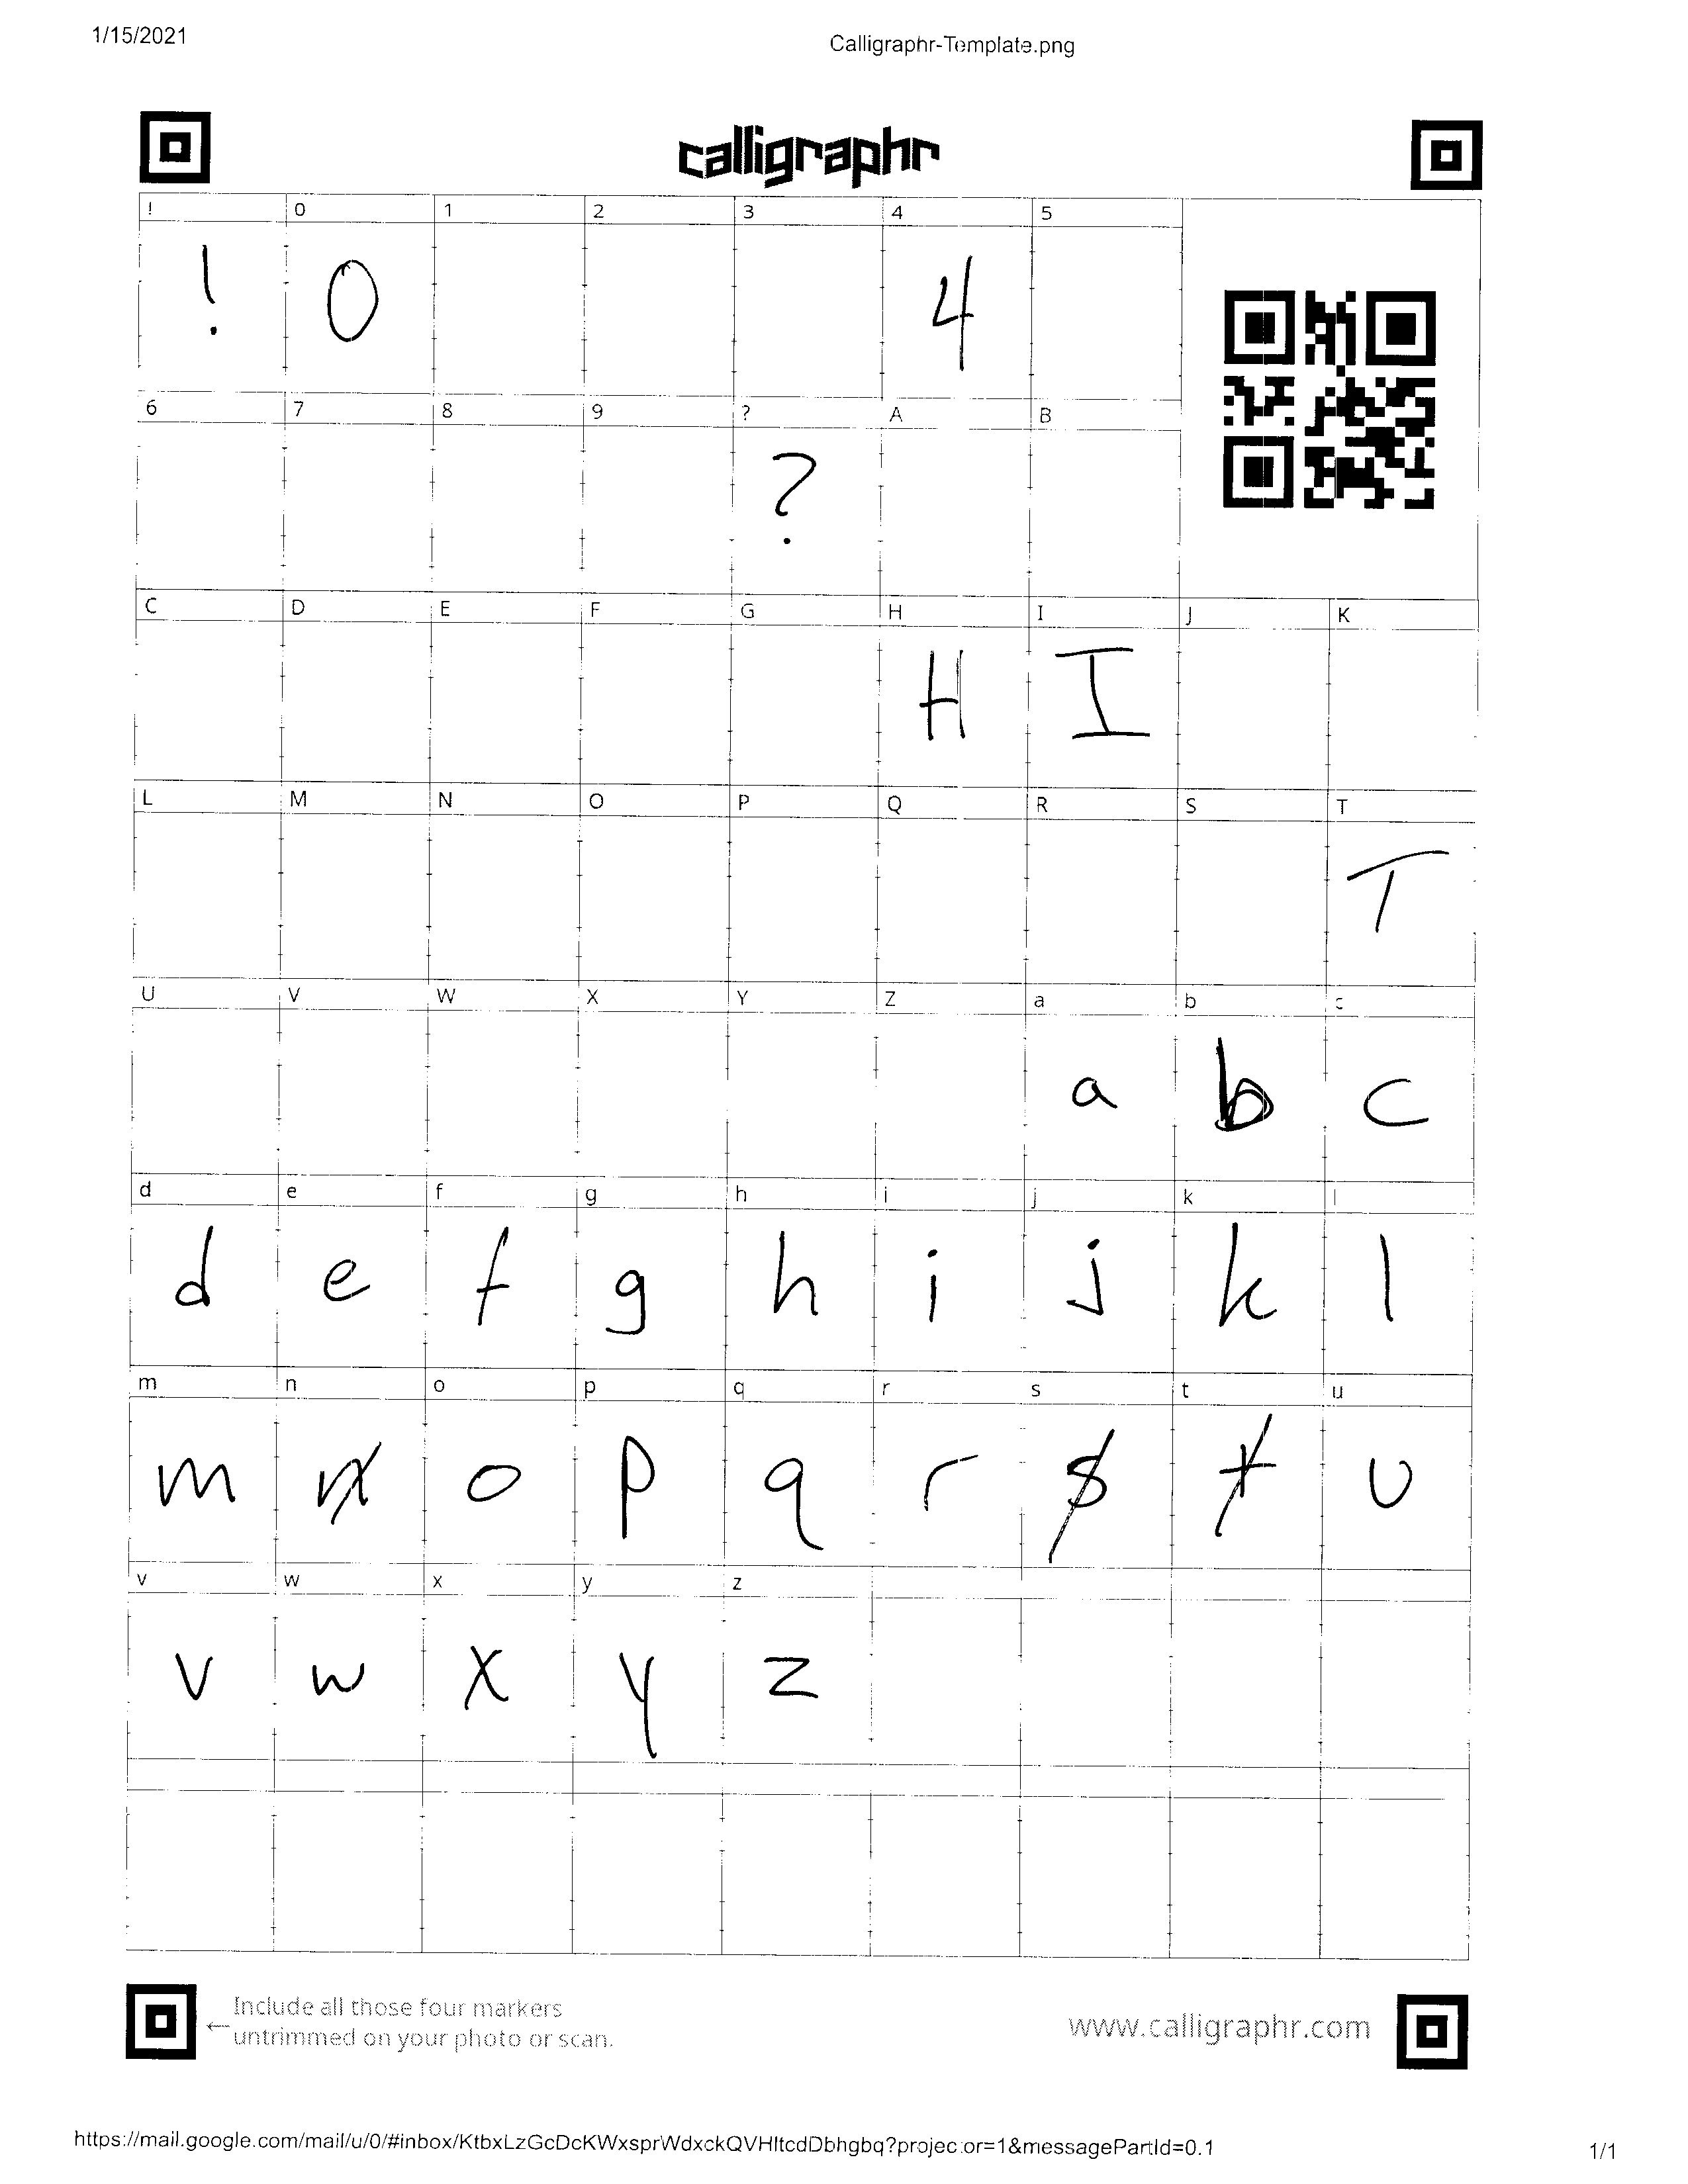 1/15/2021 Calligraphr-Template.png
calligraphr
! 0 1 2 3 4 5
! 0 4
6 7 8 9 ? A B
?
C D E F G H I J K
H I
L M N O P Q R S T
T
U V W X Y Z a b c
a b c
d e f g h i j k l
d e f g h i j k l
m n o p q r s t u
m n o p q r s t u
v w x y z
v w x y z
Include all those four markers
←untrimmed on your photo or scan.
www.calligraphr.com
https://mail.google.com/mail/u/0/#inbox/KtbxLzGcDcKWxsprWdxckQVHltcdDbhgbq?projector=1&messagePartId=0.1 1/1